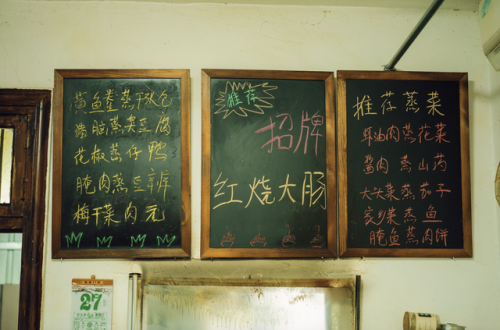 黄鱼鲞蒸千张包
猪脑蒸臭豆腐
花椒蒸仔鸭
腌肉蒸豆瓣
梅干菜肉元
推荐
招牌
红烧大肠
推荐蒸菜
肉蒸花菜
酱肉蒸山药
大头菜蒸茄子
家乡菜蒸鱼
腌鱼蒸肉饼
27